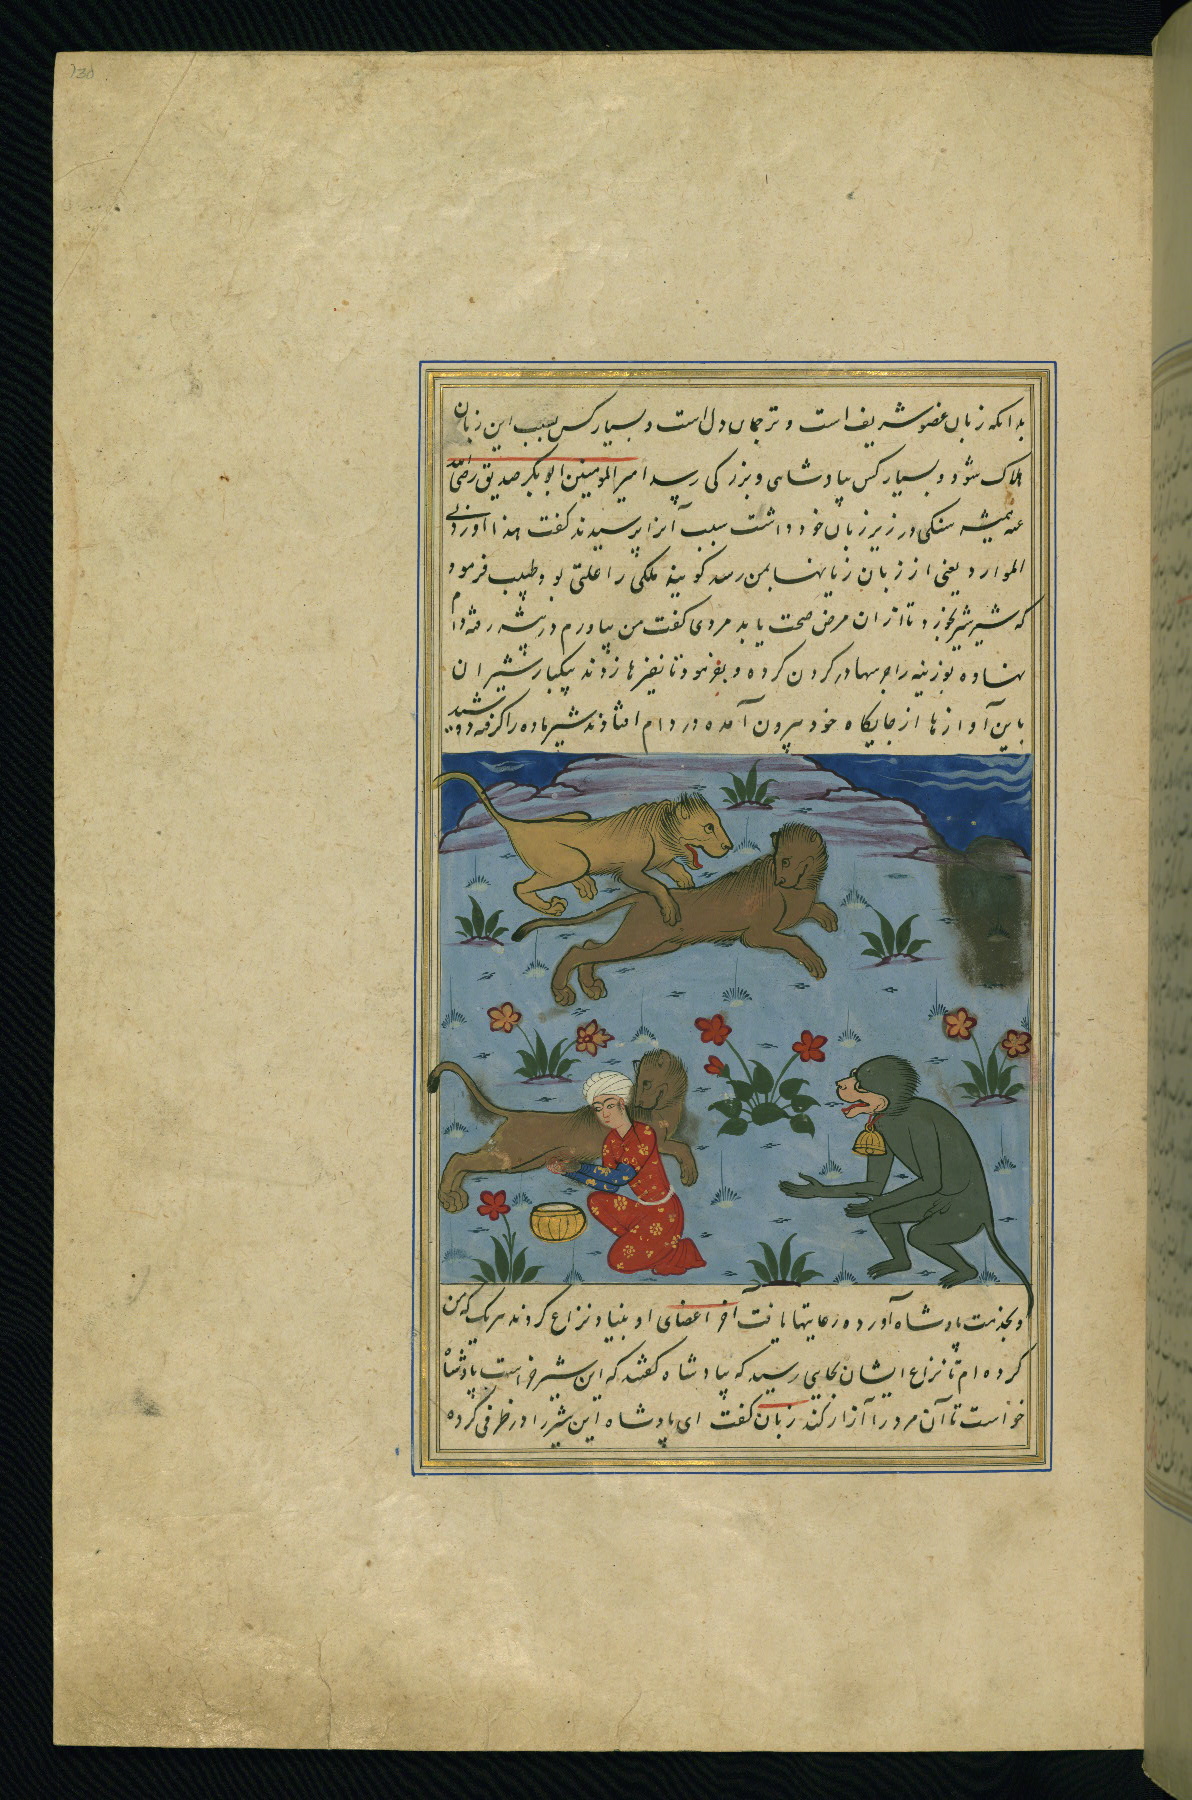 بدانکه زبان عضو شریف است و ترجمان دل است و بسیار کس بسبب این زبان
هلاک شود و بسیار کس بپادشاهی و بزرگی رسد امیر المومنین ابوبکر صدیق رضی الله
عنه همیشه سنکی در زیر زبان خود داشت سبب آنرا پرسیدند کفت هذا اوردنی
الموارد یعنی از زبان زیانها بمن رسد کویند ملکی را علتی بود طبیب فرمود
که شیر شیر بخورد تا از ان مرض صحت یابد مردی کفت من بیاورم در بیشه رفته دام
بنهاده بوزینه را جرسها در کردن کرده و بفرمود تا نفیرها زدند بیکبار شیران
باین آوازها از جایکاه خود بیرون آمده در دام افتادند شیر ماده را کرفته دوشید
و بخدمت پادشاه آورد و رعایتها یافت آخر اعضای او بنیاد نزاع کردند هر یک که من
کرده ام تا نزاع ایشان بجایی رسید که بپادشاه کفتند که این شیر خر است پادشاه
خواست تا آن مرد را آزار کند زبان کفت ای پادشاه این شیر را در ظرفی کرده